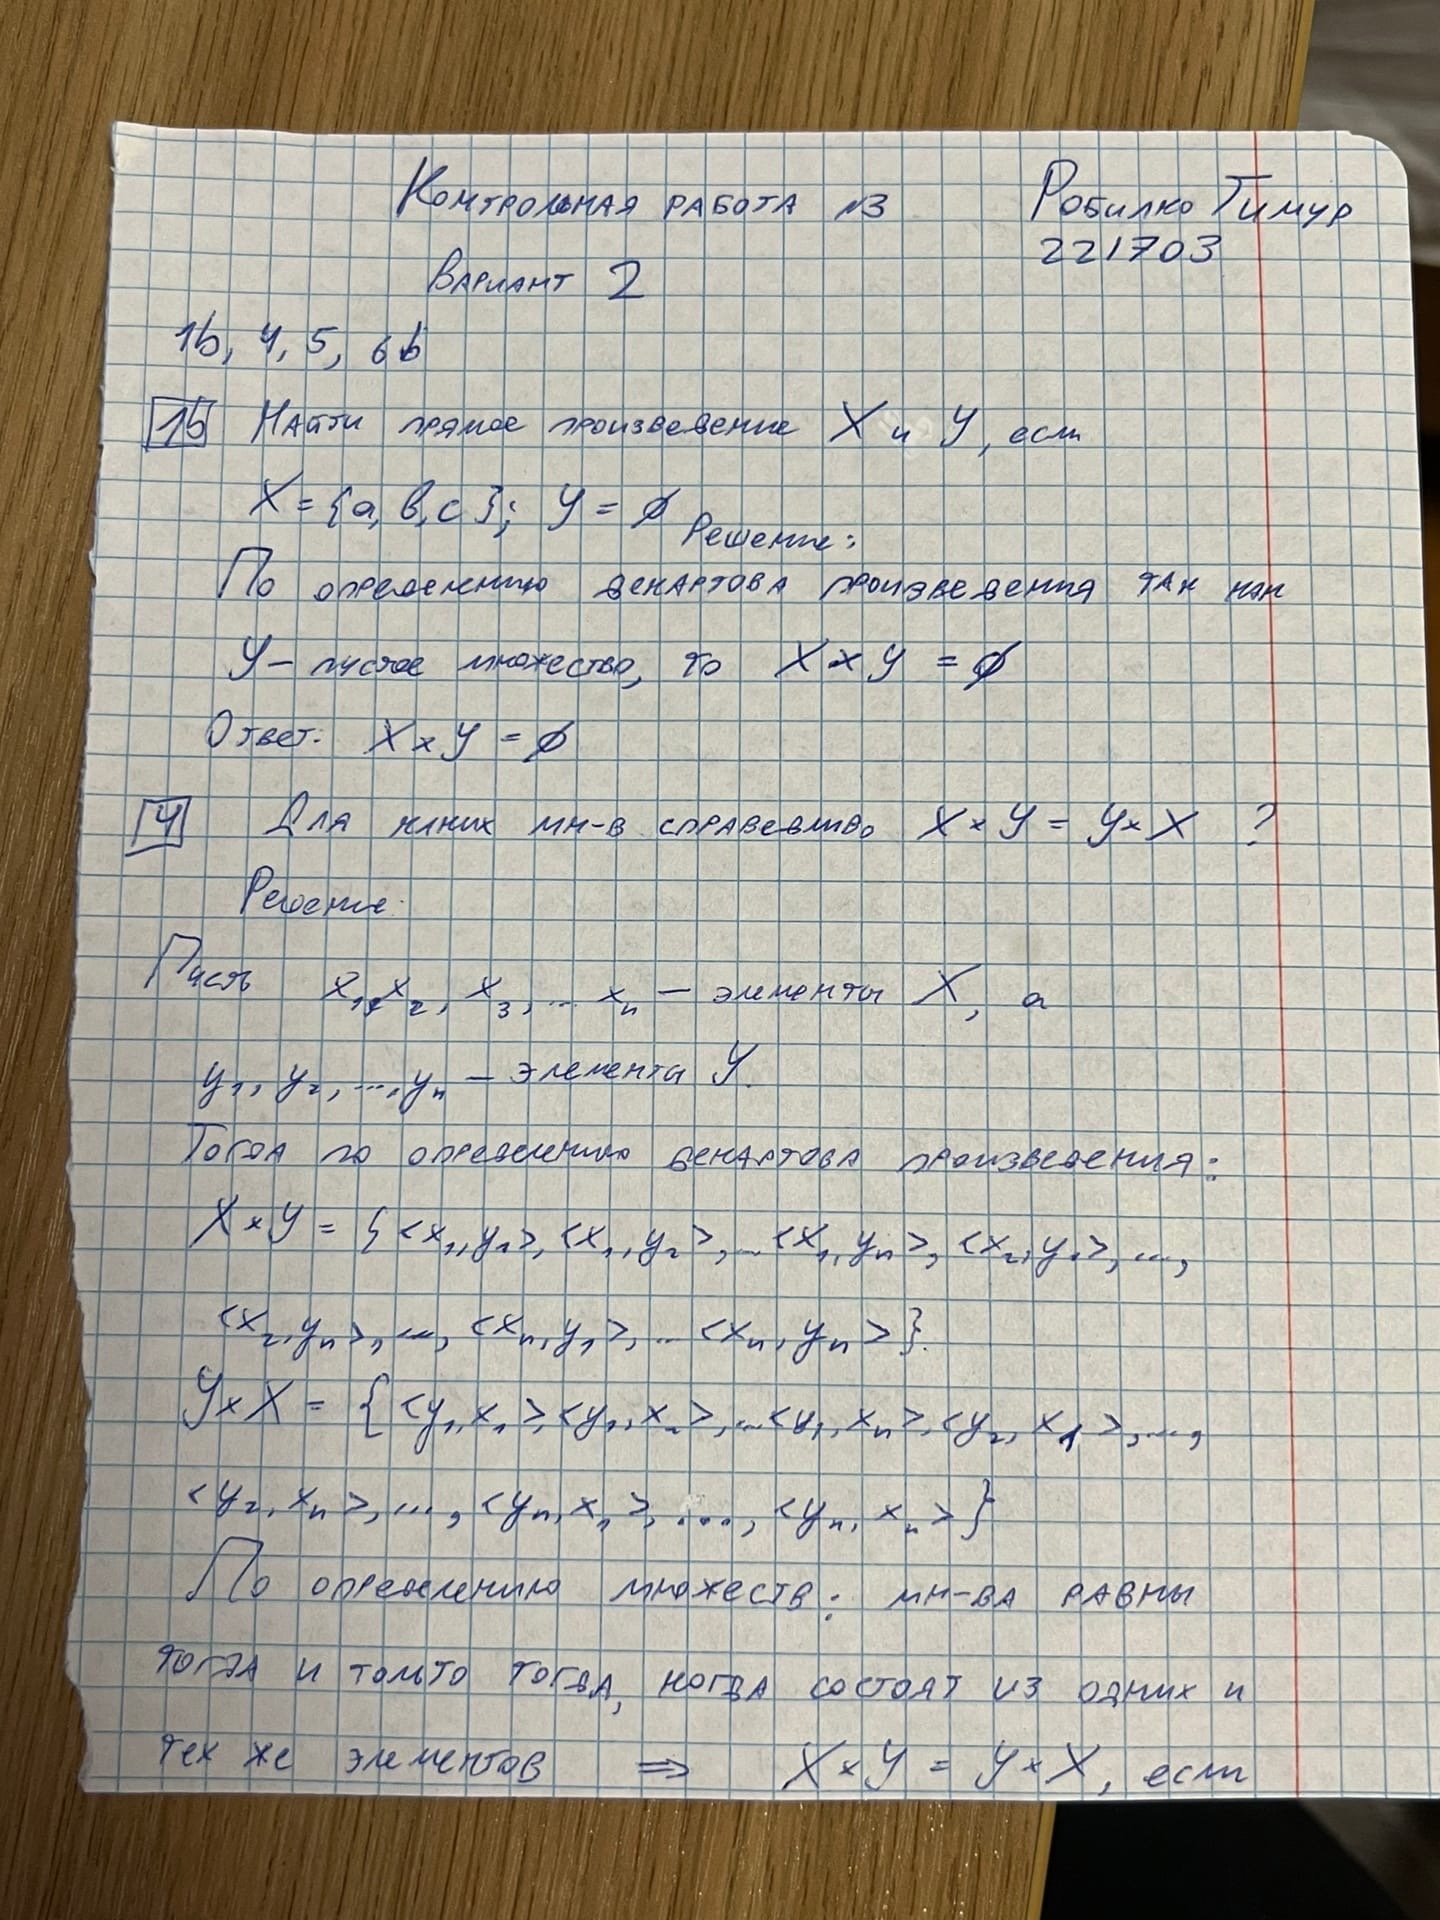 Контрольная работа №3
Робилко Тимур
221703
Вариант 2
1b, 4, 5, 6b
1b Найти прямое произведение X и Y, если
X = {a, b, c}; Y = ∅
Решение:
По определению декартова произведения так как
Y – пустое множество, то X × Y = ∅
Ответ. X × Y = ∅
4 Для каких мн-в справедливо X × Y = Y × X ?
Решение:
Пусть x₁, x₂, x₃, ... xₙ – элементы X, а
y₁, y₂, ..., yₙ – элементы Y.
Тогда по определению декартова произведения:
X × Y = {<x₁, y₁>, <x₁, y₂>, ... <x₁, yₙ>, <x₂, y₁>, ...,
<x₂, yₙ>, ..., <xₙ, y₁>, ... <xₙ, yₙ>}.
Y × X = {<y₁, x₁> <y₁, x₂>, ... <y₁, xₙ>, <y₂, x₁>, ...,
<y₂, xₙ>, ..., <yₙ, x₁>, ...., <yₙ, xₙ>}
По определению множеств: мн-ва равны
тогда и только тогда, когда состоят из одних и
тех же элементов ⇒ X × Y = Y × X, если